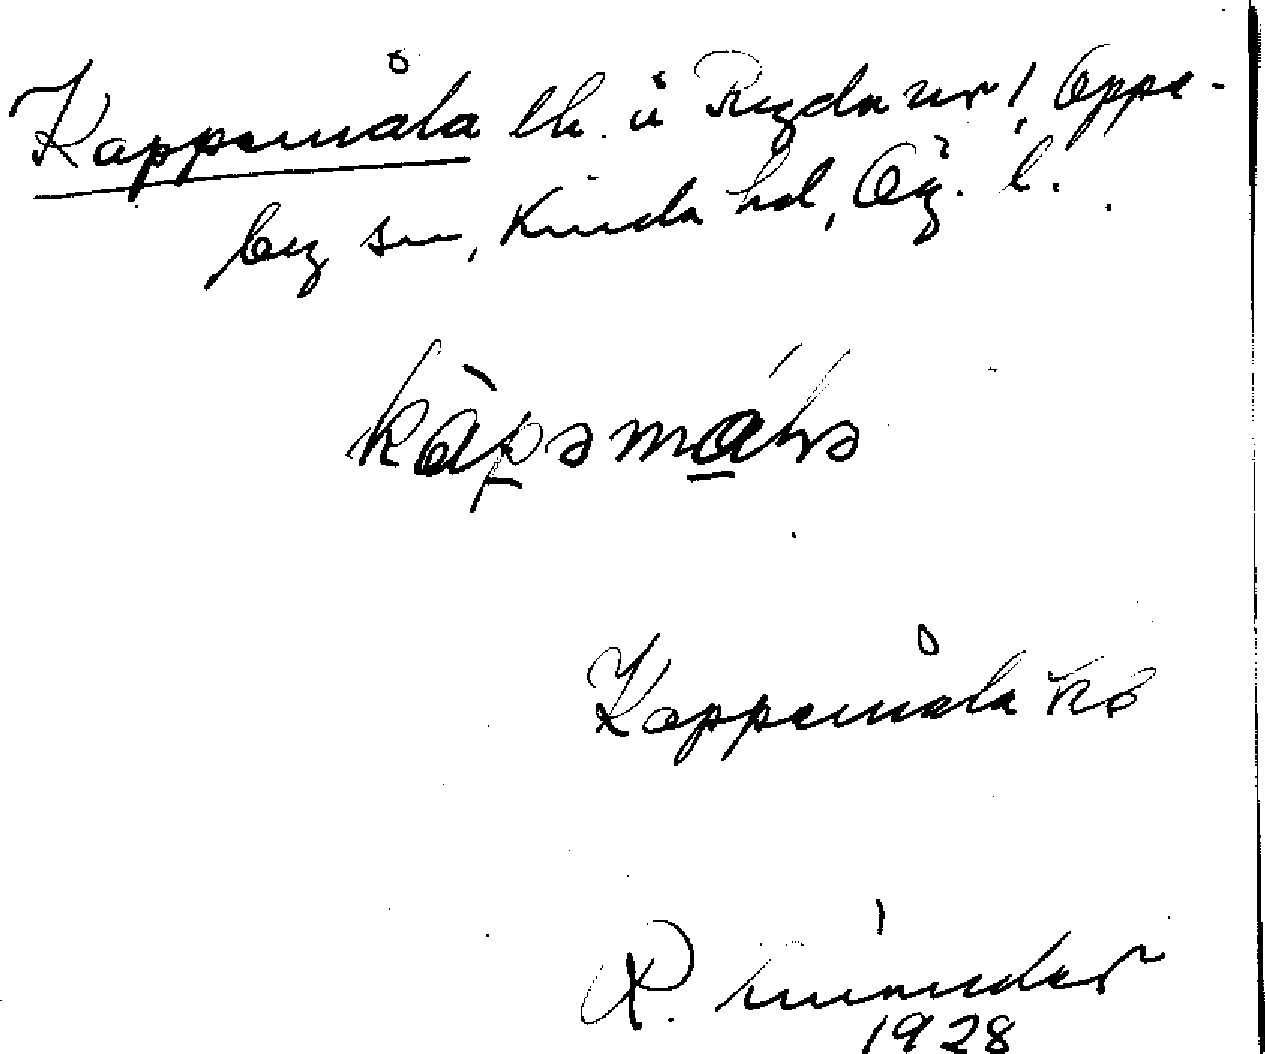 Kappemåla lh. u Rydsnr 1, Oppe-
by sn, Kinda hd, Ög. l.
kàpəmálə
Kappemåla kb
R. Linder
1928